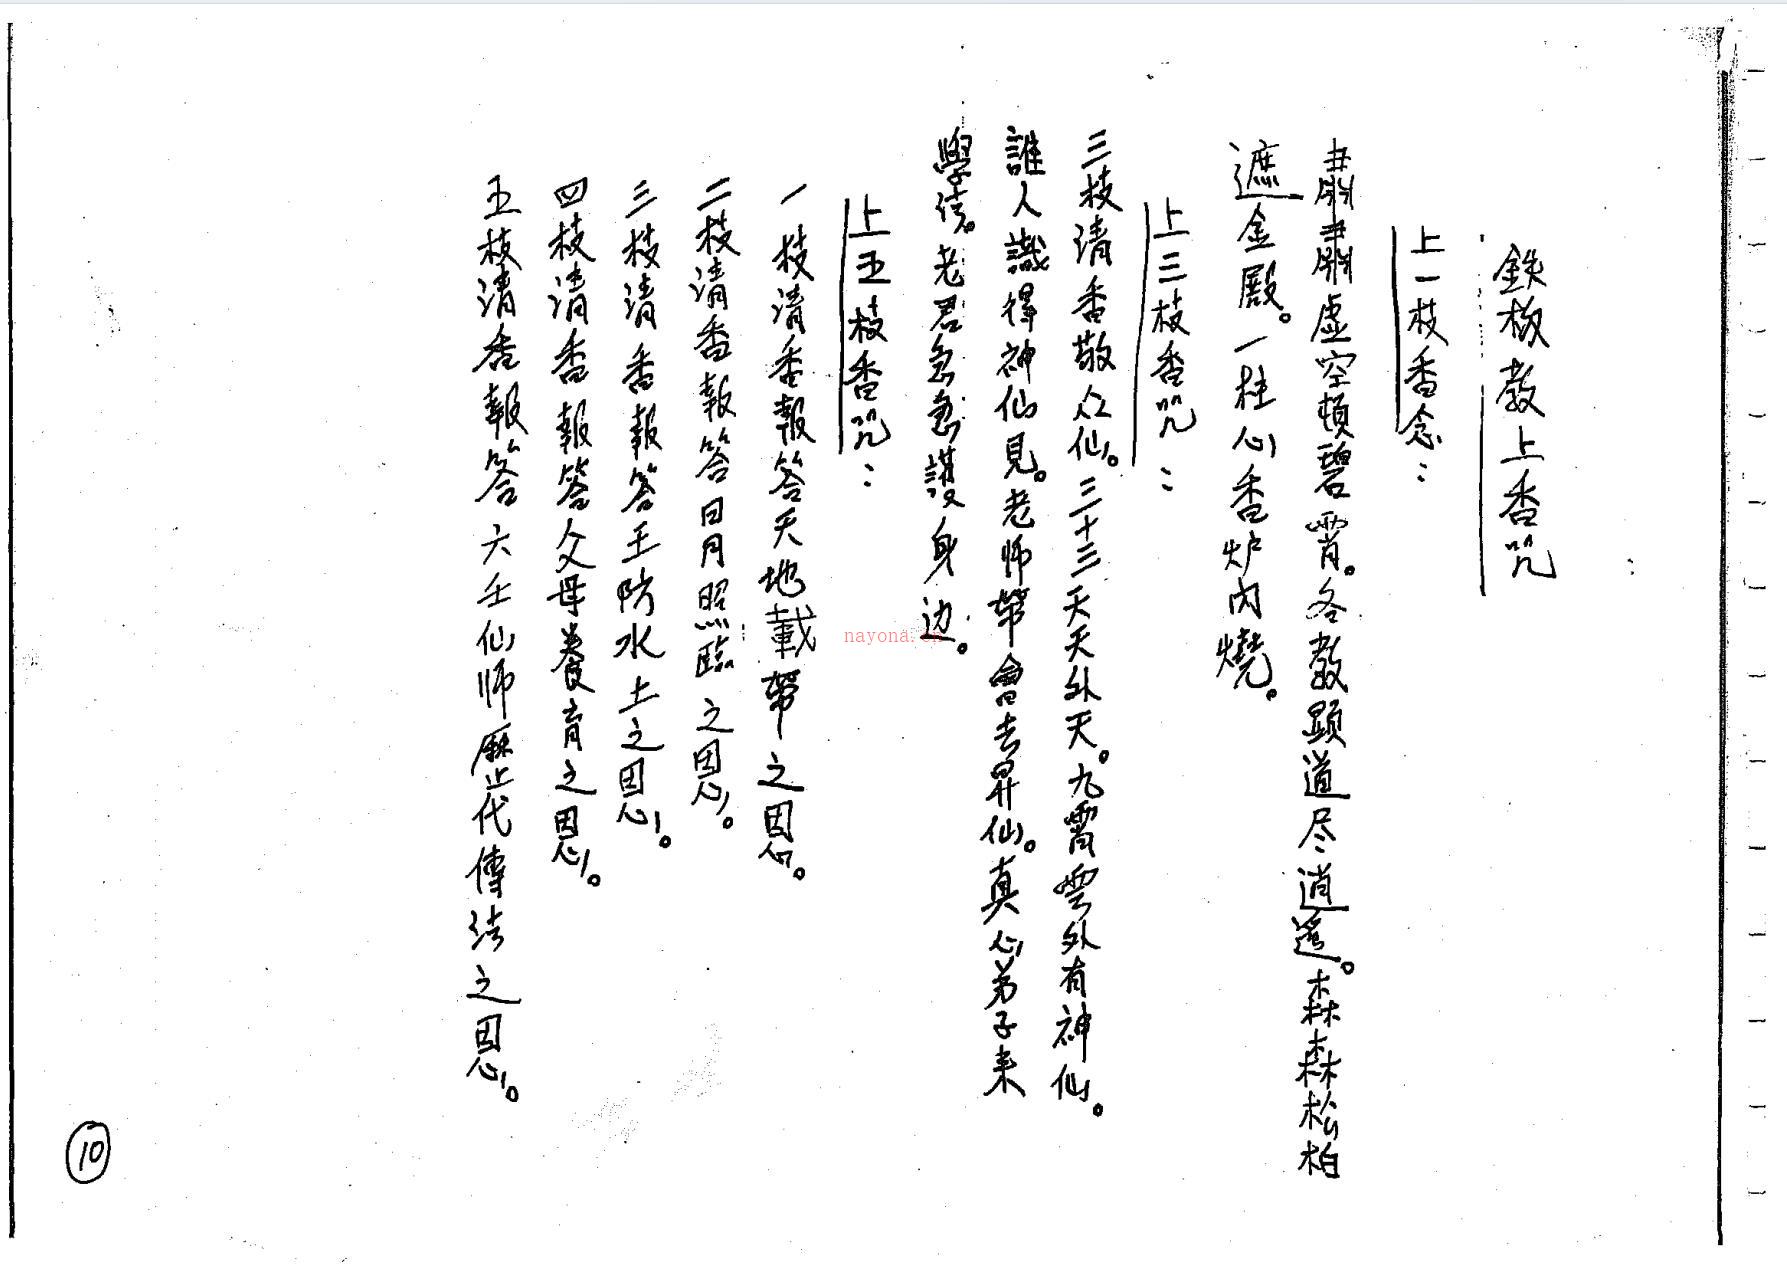 鉄板教上香咒
上一枝香念：
肅肅虛空頓碧霄。各教顕道尽逍遥。森森松柏
遮金殿。一柱心香炉内燒。
上三枝香咒：
三枝清香敬众仙。三十三天天外天。九霄雲外有神仙。
誰人識得神仙見。老师帶會去昇仙。真心弟子来
學法。老君急急護身边。
上五枝香咒：
一枝清香報答天地載帶之恩。
二枝清香報答日月照臨之恩。
三枝清香報答王防水土之恩。
四枝清香報答父母養育之恩。
五枝清香報答六壬仙师歷代傳法之恩。
10
nayona.cn